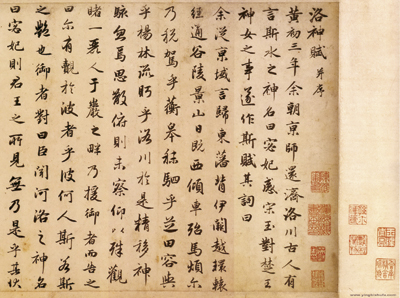 洛神賦 并序
黃初三年余朝京師還濟洛川古人有
言斯水之神名曰宓妃感宋玉對楚王
神女之事遂作斯賦其詞曰
余從京域言歸東藩背伊闕越轘轅
經通谷陵景山日既西傾車殆馬煩爾
乃稅駕乎蘅皋秣駟乎芝田容與
乎楊林流眄乎洛川於是精移神
駭忽焉思散俯則未察仰以殊觀
睹一麗人于巖之畔乃援御者而告之
曰尓有覿於彼者乎彼何人斯若斯
之豔也御者對曰臣聞河洛之神名
曰宓妃則君王之所見無乃是乎其狀
www.yingbishufa.com